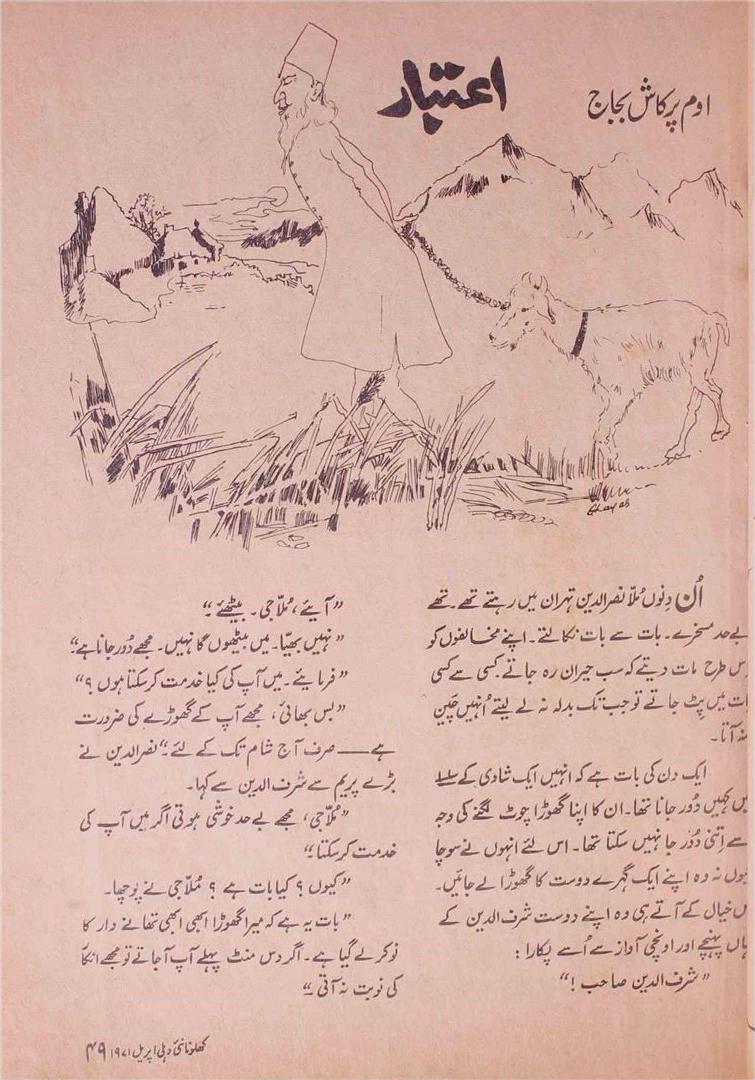 اوم پرکاش بجاج
اعتبار
اُن دِنوں مُلّا نصرالدین تہران میں رہتے تھے۔ تھے
بےحد مسخرے۔ بات سے بات نکالتے۔ اپنے مخالفوں کو
اس طرح مات دیتے کہ سب حیران رہ جاتے۔ کسی سے کسی
بات میں پِٹ جاتے تو جب تک بدلہ نہ لے لیتے اُنہیں چَین
نہ آتا۔
ایک دن کی بات ہے کہ انہیں ایک شادی کے سلسلے
میں کہیں دُور جانا تھا۔ ان کا اپنا گھوڑا چوٹ لگنے کی وجہ
سے اِتنی دُور جا نہیں سکتا تھا۔ اس لئے انہوں نے سوچا
کیوں نہ وہ اپنے ایک گہرے دوست کا گھوڑا لے جائیں۔
اس خیال کے آتے ہی وہ اپنے دوست شرف الدین کے
ہاں پہنچے اور اونچی آواز سے اُسے پکارا :
”شرف الدین صاحب !“
”آیئے، مُلّا جی۔ بیٹھئے۔“
”نہیں بھیّا۔ میں بیٹھوں گا نہیں۔ مجھے دُور جانا ہے۔“
”فرمایئے۔ میں آپ کی کیا خدمت کر سکتا ہوں ؟“
”بس بھائی، مجھے آپ کے گھوڑے کی ضرورت
ہے —— صرف آج شام تک کے لئے۔“ نصرالدین نے
بڑے پریم سے شرف الدین سے کہا۔
”مُلّا جی، مجھے بےحد خوشی ہوتی اگر میں آپ کی
خدمت کر سکتا۔“
”کیوں ؟ کیا بات ہے ؟ مُلّا جی نے پوچھا۔
”بات یہ ہے کہ میرا گھوڑا ابھی ابھی تھانے دار کا
نوکر لے گیا ہے۔ اگر دس منٹ پہلے آپ آ جاتے تو مجھے انکار
کی نوبت نہ آتی۔“
کھلونا نئی دہلی اپریل ۱۹۷۱ ۴۹